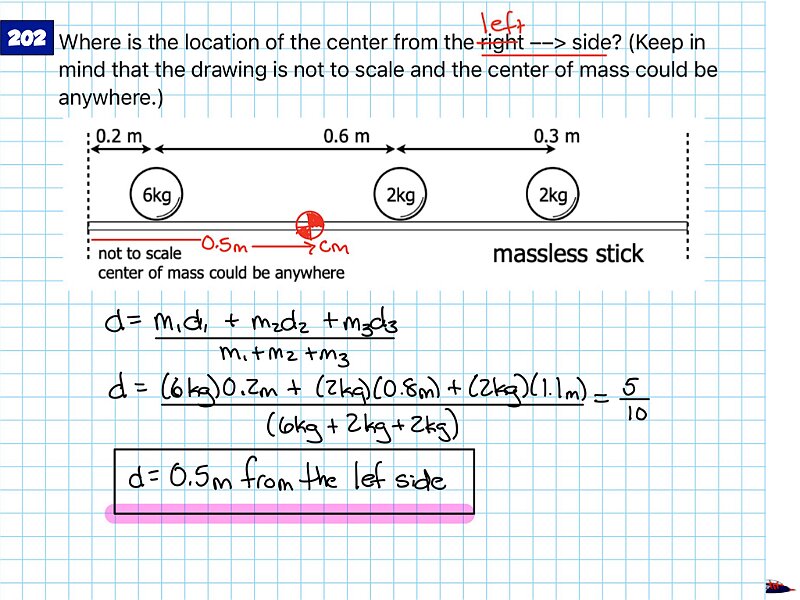 left
202 Where is the location of the center from the right --> side? (Keep in
mind that the drawing is not to scale and the center of mass could be
anywhere.)
0.2 m 0.6 m 0.3 m
6kg 2kg 2kg
0.5m cm
not to scale massless stick
center of mass could be anywhere
d = m₁d₁ + m₂d₂ + m₃d₃
m₁+m₂+m₃
d = (6kg)0.2m + (2kg)(0.8m) + (2kg)(1.1m) = 5
(6kg + 2kg + 2kg) 10
d = 0.5m from the lef side